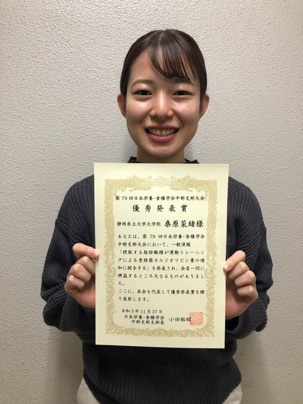 第75回日本栄養・食糧学会中部支部大会
優秀発表賞
静岡県立大学大学院 桑原菜緒様
あなたは、第75回日本栄養・食糧学会
中部支部大会において、一般演題
「摂取する脂肪酸種が運動トレーニン
グによる骨格筋カルジオリピン量の増
加に関与する」を発表され、会員一同に
裨益するところ大なるものがありまし
た。
ここに、本会を代表して優秀発表賞を贈
り表彰します。
11月27日
日本栄養・食糧学会
中部支部支部長 小田裕昭